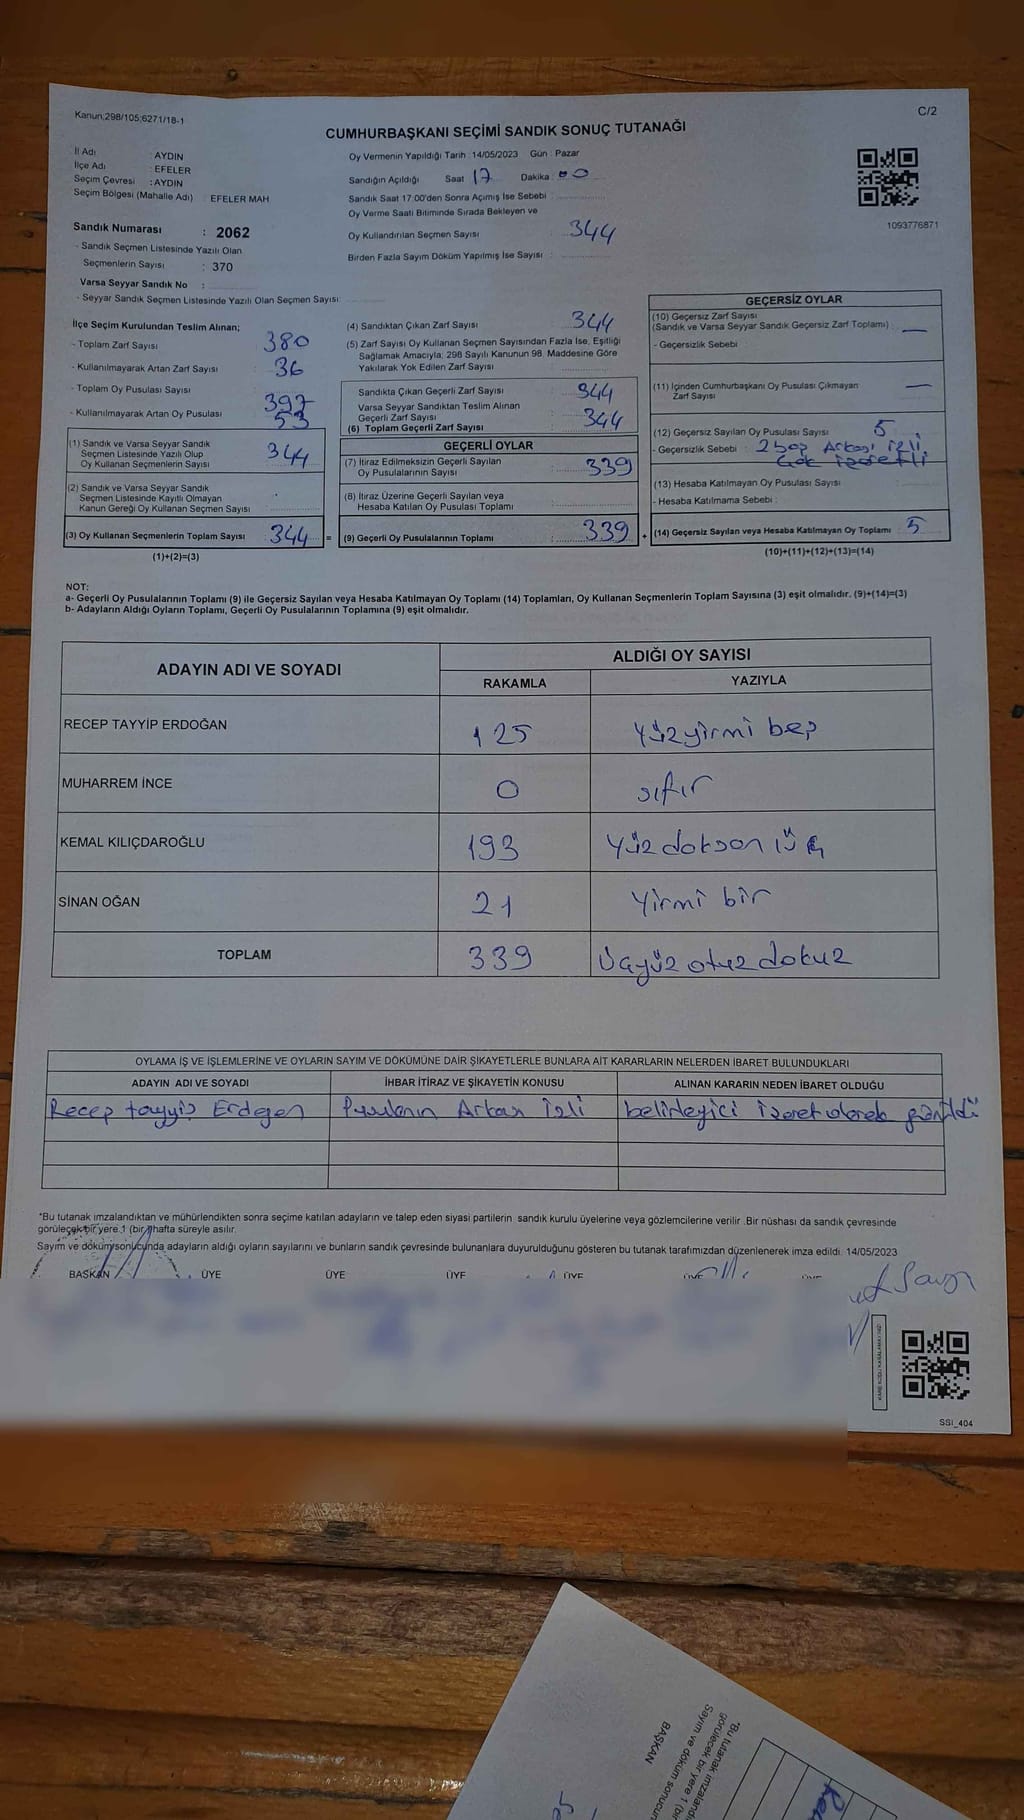 Kanun;298/105;6271/18-1
C/2
CUMHURBAŞKANI SEÇİMİ SANDIK SONUÇ TUTANAĞI
İl Adı : AYDIN
İlçe Adı : EFELER
Seçim Çevresi : AYDIN
Seçim Bölgesi (Mahalle Adı) : EFELER MAH
Sandık Numarası : 2062
- Sandık Seçmen Listesinde Yazılı Olan
Seçmenlerin Sayısı : 370
Varsa Seyyar Sandık No :
- Seyyar Sandık Seçmen Listesinde Yazılı Olan Seçmen Sayısı:
Oy Vermenin Yapıldığı Tarih : 14/05/2023 Gün : Pazar
Sandığın Açıldığı Saat 17 Dakika : 00
Sandık Saat 17:00'den Sonra Açımış İse Sebebi :
Oy Verme Saati Bitiminde Sırada Bekleyen ve
Oy Kullandırılan Seçmen Sayısı : 344
Birden Fazla Sayım Döküm Yapılmış İse Sayısı :
1093776871
İlçe Seçim Kurulundan Teslim Alınan;
- Toplam Zarf Sayısı : 380
- Kullanılmayarak Artan Zarf Sayısı : 36
- Toplam Oy Pusulası Sayısı : 397
- Kullanılmayarak Artan Oy Pusulası : 53
(1) Sandık ve Varsa Seyyar Sandık
Seçmen Listesinde Yazılı Olup
Oy Kullanan Seçmenlerin Sayısı : 344
(2) Sandık ve Varsa Seyyar Sandık
Seçmen Listesinde Kayıtlı Olmayan
Kanun Gereği Oy Kullanan Seçmen Sayısı :
(3) Oy Kullanan Seçmenlerin Toplam Sayısı : 344 =
(1)+(2)=(3)
(4) Sandıktan Çıkan Zarf Sayısı : 344
(5) Zarf Sayısı Oy Kullanan Seçmen Sayısından Fazla İse, Eşitliği
Sağlamak Amacıyla; 298 Sayılı Kanunun 98. Maddesine Göre
Yakılarak Yok Edilen Zarf Sayısı :
Sandıkta Çıkan Geçerli Zarf Sayısı : 344
Varsa Seyyar Sandıktan Teslim Alınan
Geçerli Zarf Sayısı
(6) Toplam Geçerli Zarf Sayısı : 344
GEÇERLİ OYLAR
(7) İtiraz Edilmeksizin Geçerli Sayılan
Oy Pusulalarının Sayısı : 339
(8) İtiraz Üzerine Geçerli Sayılan veya
Hesaba Katılan Oy Pusulası Toplamı :
(9) Geçerli Oy Pusulalarının Toplamı : 339 +
GEÇERSİZ OYLAR
(10) Geçersiz Zarf Sayısı
(Sandık ve Varsa Seyyar Sandık Geçersiz Zarf Toplamı) : —
- Geçersizlik Sebebi :
(11) İçinden Cumhurbaşkanı Oy Pusulası Çıkmayan
Zarf Sayısı : —
(12) Geçersiz Sayılan Oy Pusulası Sayısı : 5
- Geçersizlik Sebebi : 2 boş Arkası izli,
Çok işaretli
(13) Hesaba Katılmayan Oy Pusulası Sayısı :
- Hesaba Katılmama Sebebi :
(14) Geçersiz Sayılan veya Hesaba Katılmayan Oy Toplamı : 5
(10)+(11)+(12)+(13)=(14)
NOT:
a- Geçerli Oy Pusulalarının Toplamı (9) ile Geçersiz Sayılan veya Hesaba Katılmayan Oy Toplamı (14) Toplamları, Oy Kullanan Seçmenlerin Toplam Sayısına (3) eşit olmalıdır. (9)+(14)=(3)
b- Adayların Aldığı Oyların Toplamı, Geçerli Oy Pusulalarının Toplamına (9) eşit olmalıdır.
ADAYIN ADI VE SOYADI
ALDIĞI OY SAYISI
RAKAMLA YAZIYLA
RECEP TAYYİP ERDOĞAN 125 Yüzyirmi beş
MUHARREM İNCE 0 sıfır
KEMAL KILIÇDAROĞLU 193 Yüz doksan üç
SİNAN OĞAN 21 Yirmi bir
TOPLAM 339 Üçyüz otuz dokuz
OYLAMA İŞ VE İŞLEMLERİNE VE OYLARIN SAYIM VE DÖKÜMÜNE DAİR ŞİKAYETLERLE BUNLARA AİT KARARLARIN NELERDEN İBARET BULUNDUKLARI
ADAYIN ADI VE SOYADI İHBAR İTİRAZ VE ŞİKAYETİN KONUSU ALINAN KARARIN NEDEN İBARET OLDUĞU
Recep tayyip Erdegen Pusulanın Arkası İzli belirleyici işaret olarak görüldü
*Bu tutanak imzalandıktan ve mühürlendikten sonra seçime katılan adayların ve talep eden siyasi partilerin sandık kurulu üyelerine veya gözlemcilerine verilir. Bir nüshası da sandık çevresinde
görülecek bir yere 1 (bir) hafta süreyle asılır.
Sayım ve döküm sonucunda adayların aldığı oyların sayılarını ve bunların sandık çevresinde bulunanlara duyurulduğunu gösteren bu tutanak tarafımızdan düzenlenerek imza edildi. 14/05/2023
BAŞKAN ÜYE ÜYE ÜYE ÜYE ÜYE ÜYE
SSI_404
*Bu tutanak imzalandı
görülecek bir yere 1 (bir
Sayım ve döküm sonucun
BAŞKAN